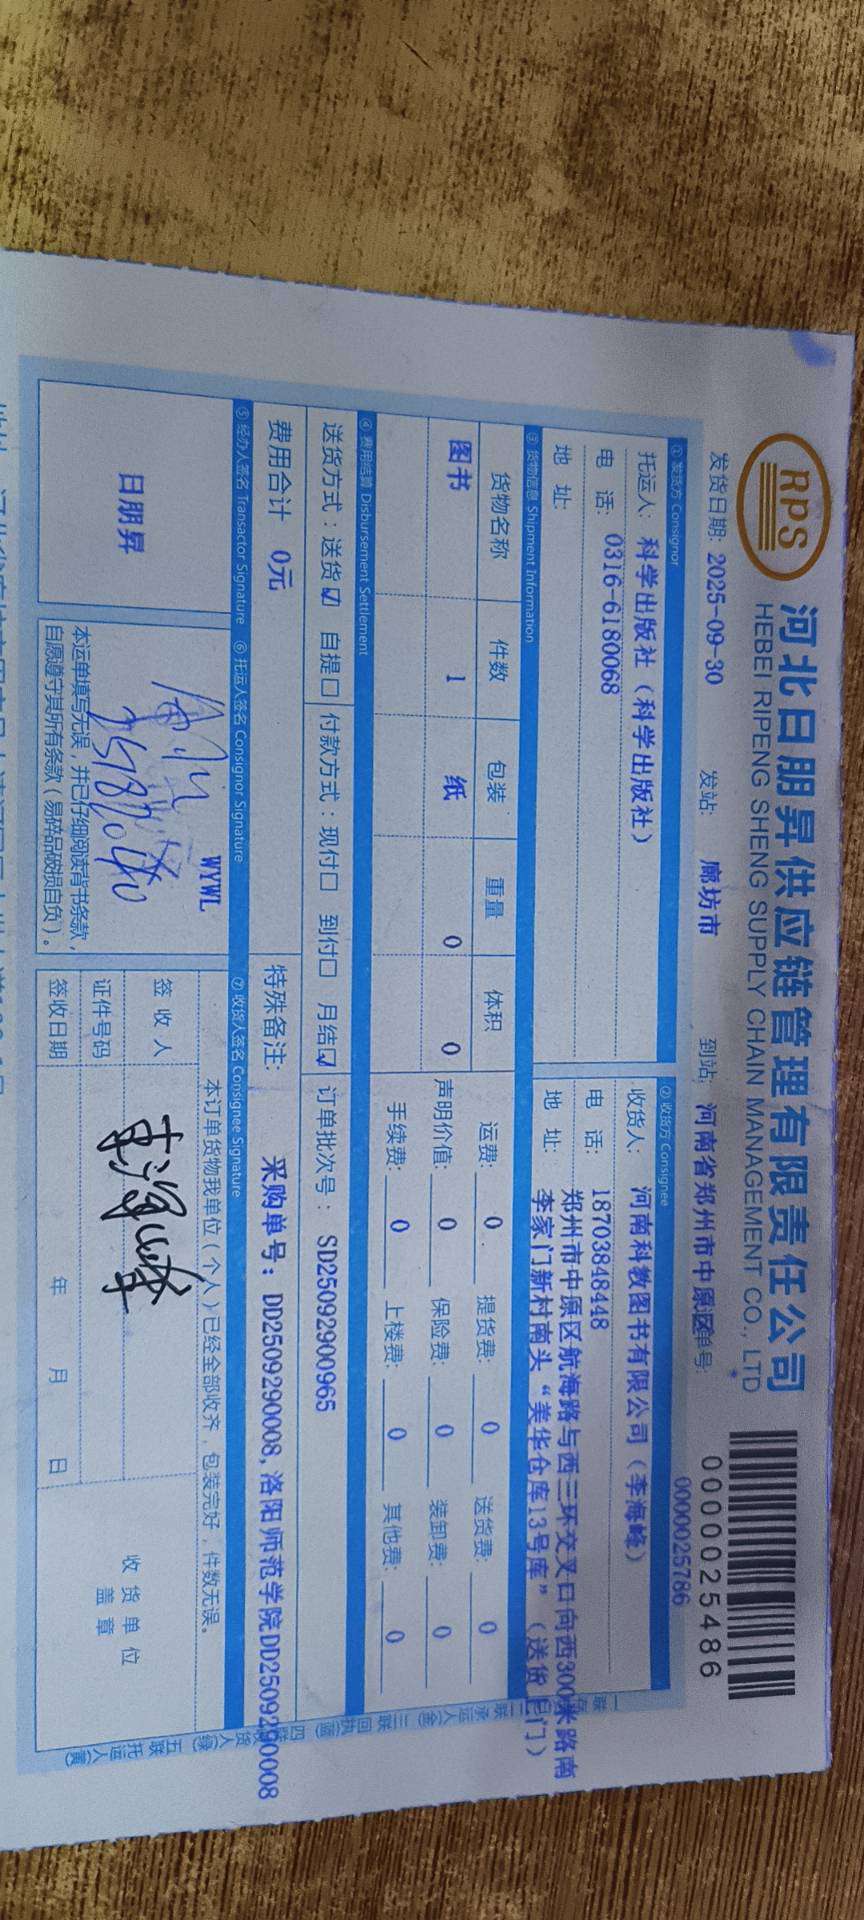 RPS
河北日朋昇供应链管理有限责任公司
HEBEI RIPENG SHENG SUPPLY CHAIN MANAGEMENT CO., LTD
0000025486
发货日期: 2025-09-30 发站: 廊坊市 到站: 河南省郑州市中原区 单号:
0000025786
① 发货方 Consignor
托运人: 科学出版社（科学出版社）
电 话: 0316-6180068
地 址:
② 收货方 Consignee
收货人: 河南科教图书有限公司（李海峰）
电 话: 18703848448
地 址: 郑州市中原区航海路与西三环交叉口向西300米路南
李家门新村南头“美华仓库13号库”（送货上门）
③ 货物信息 Shipment Information
货物名称 件数 包装 重量 体积
图书 1 纸 0 0
运费: 0 提货费: 0 送货费: 0
声明价值: 0 保险费: 0 装卸费: 0
手续费: 0 上楼费: 0 其他费: 0
④ 费用结算 Disbursement Settlement
送货方式：送货☑ 自提☐ 付款方式：现付☐ 到付☐ 月结☑ 订单批次号： SD25092900965
费用合计 0元 特殊备注: 采购单号：DD2509290008,洛阳师范学院DD2509290008
⑤ 经办人签名 Transactor Signature
日朋昇
⑥ 托运人签名 Consignor Signature
WYWL
本运单填写无误，并已仔细阅读背书条款，
自愿遵守其所有条款（易碎品破损自负）。
⑦ 收货人签名 Consignee Signature
本订单货物我单位（个人）已经全部收齐，包装完好，件数无误。
签 收 人
证件号码
签收日期 年 月 日
收货单位
盖章